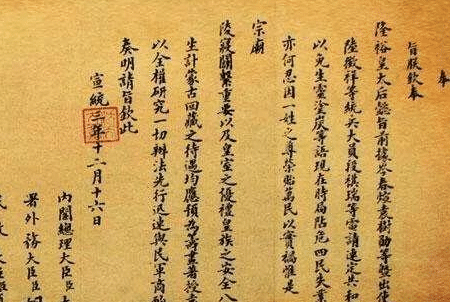 奉
旨朕欽奉
隆裕皇太后懿旨前據岑春煊袁樹勛等暨出使
陸徵祥等統兵大員段祺瑞等電請速定共和
以免生靈塗炭等語現在時局阽危四民失業
亦何忍因一姓之尊榮貽萬民以實禍惟是
宗廟
陵寢關繫重要以及皇室之優禮皇族之安全八
生計蒙古回藏之待遇均應預為籌畫著授袁
以全權研究一切辦法先行迅速與民軍商酌
奏明請旨欽此
宣統三年十二月十六日
內閣總理大臣臣
署外務大臣臣